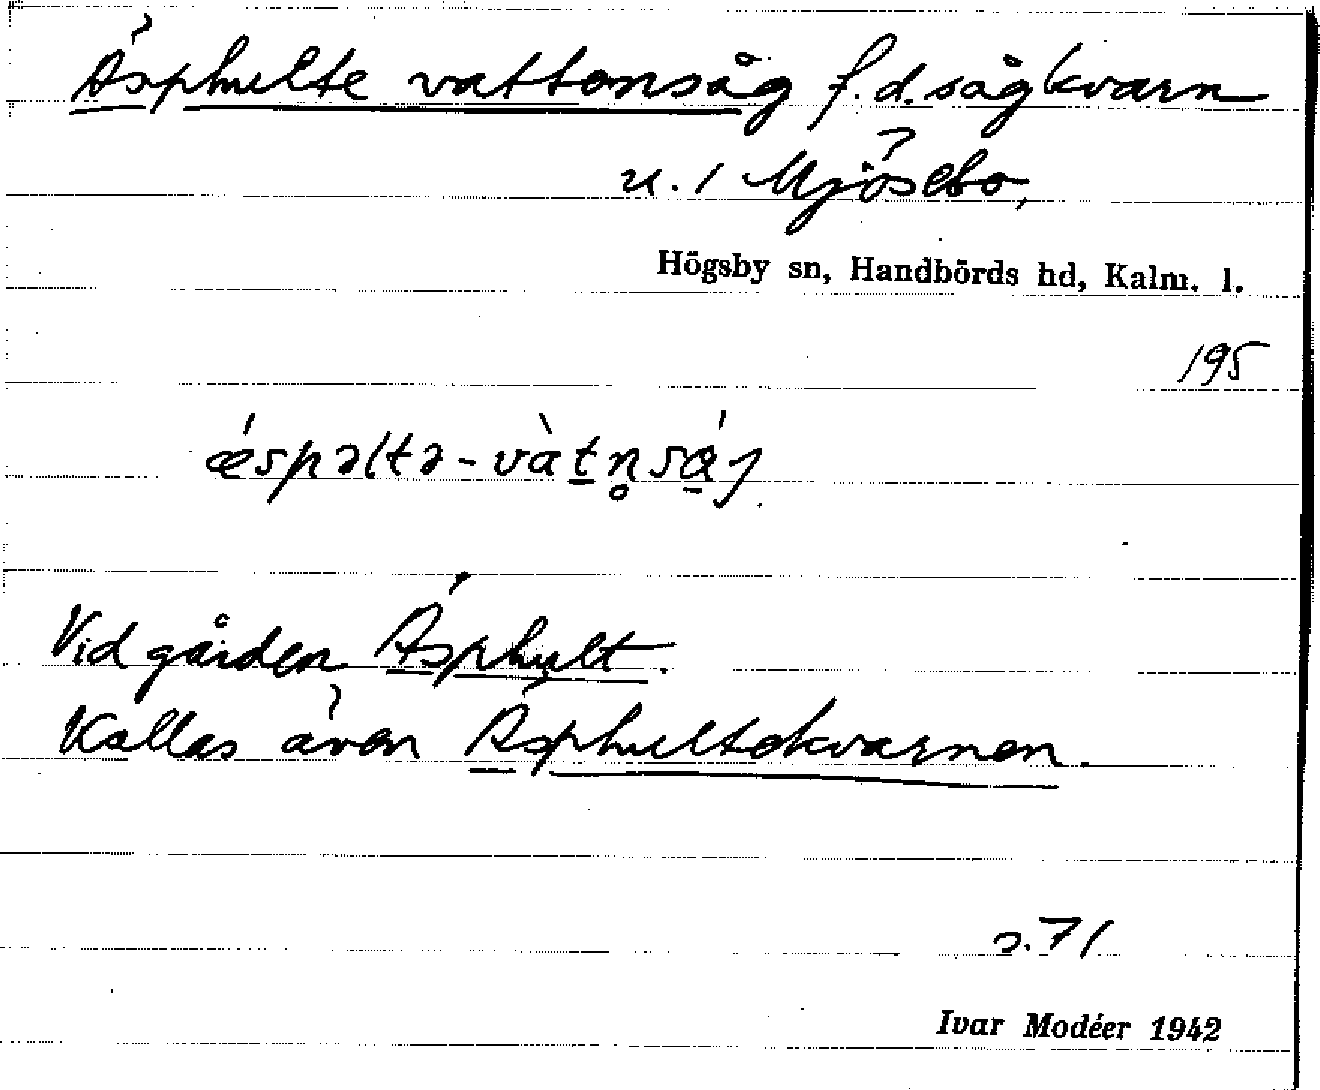 Äsphulte vattensåg f.d. sågkvarn
u. 1 Mjösebo,
Högsby sn, Handbörds hd, Kalm. l.
195
ǽspəltə-vàtn̥sáj
Vid gården Äsphult.
Kallas även Äsphultekvarnen.
s. 71
Ivar Modéer 1942